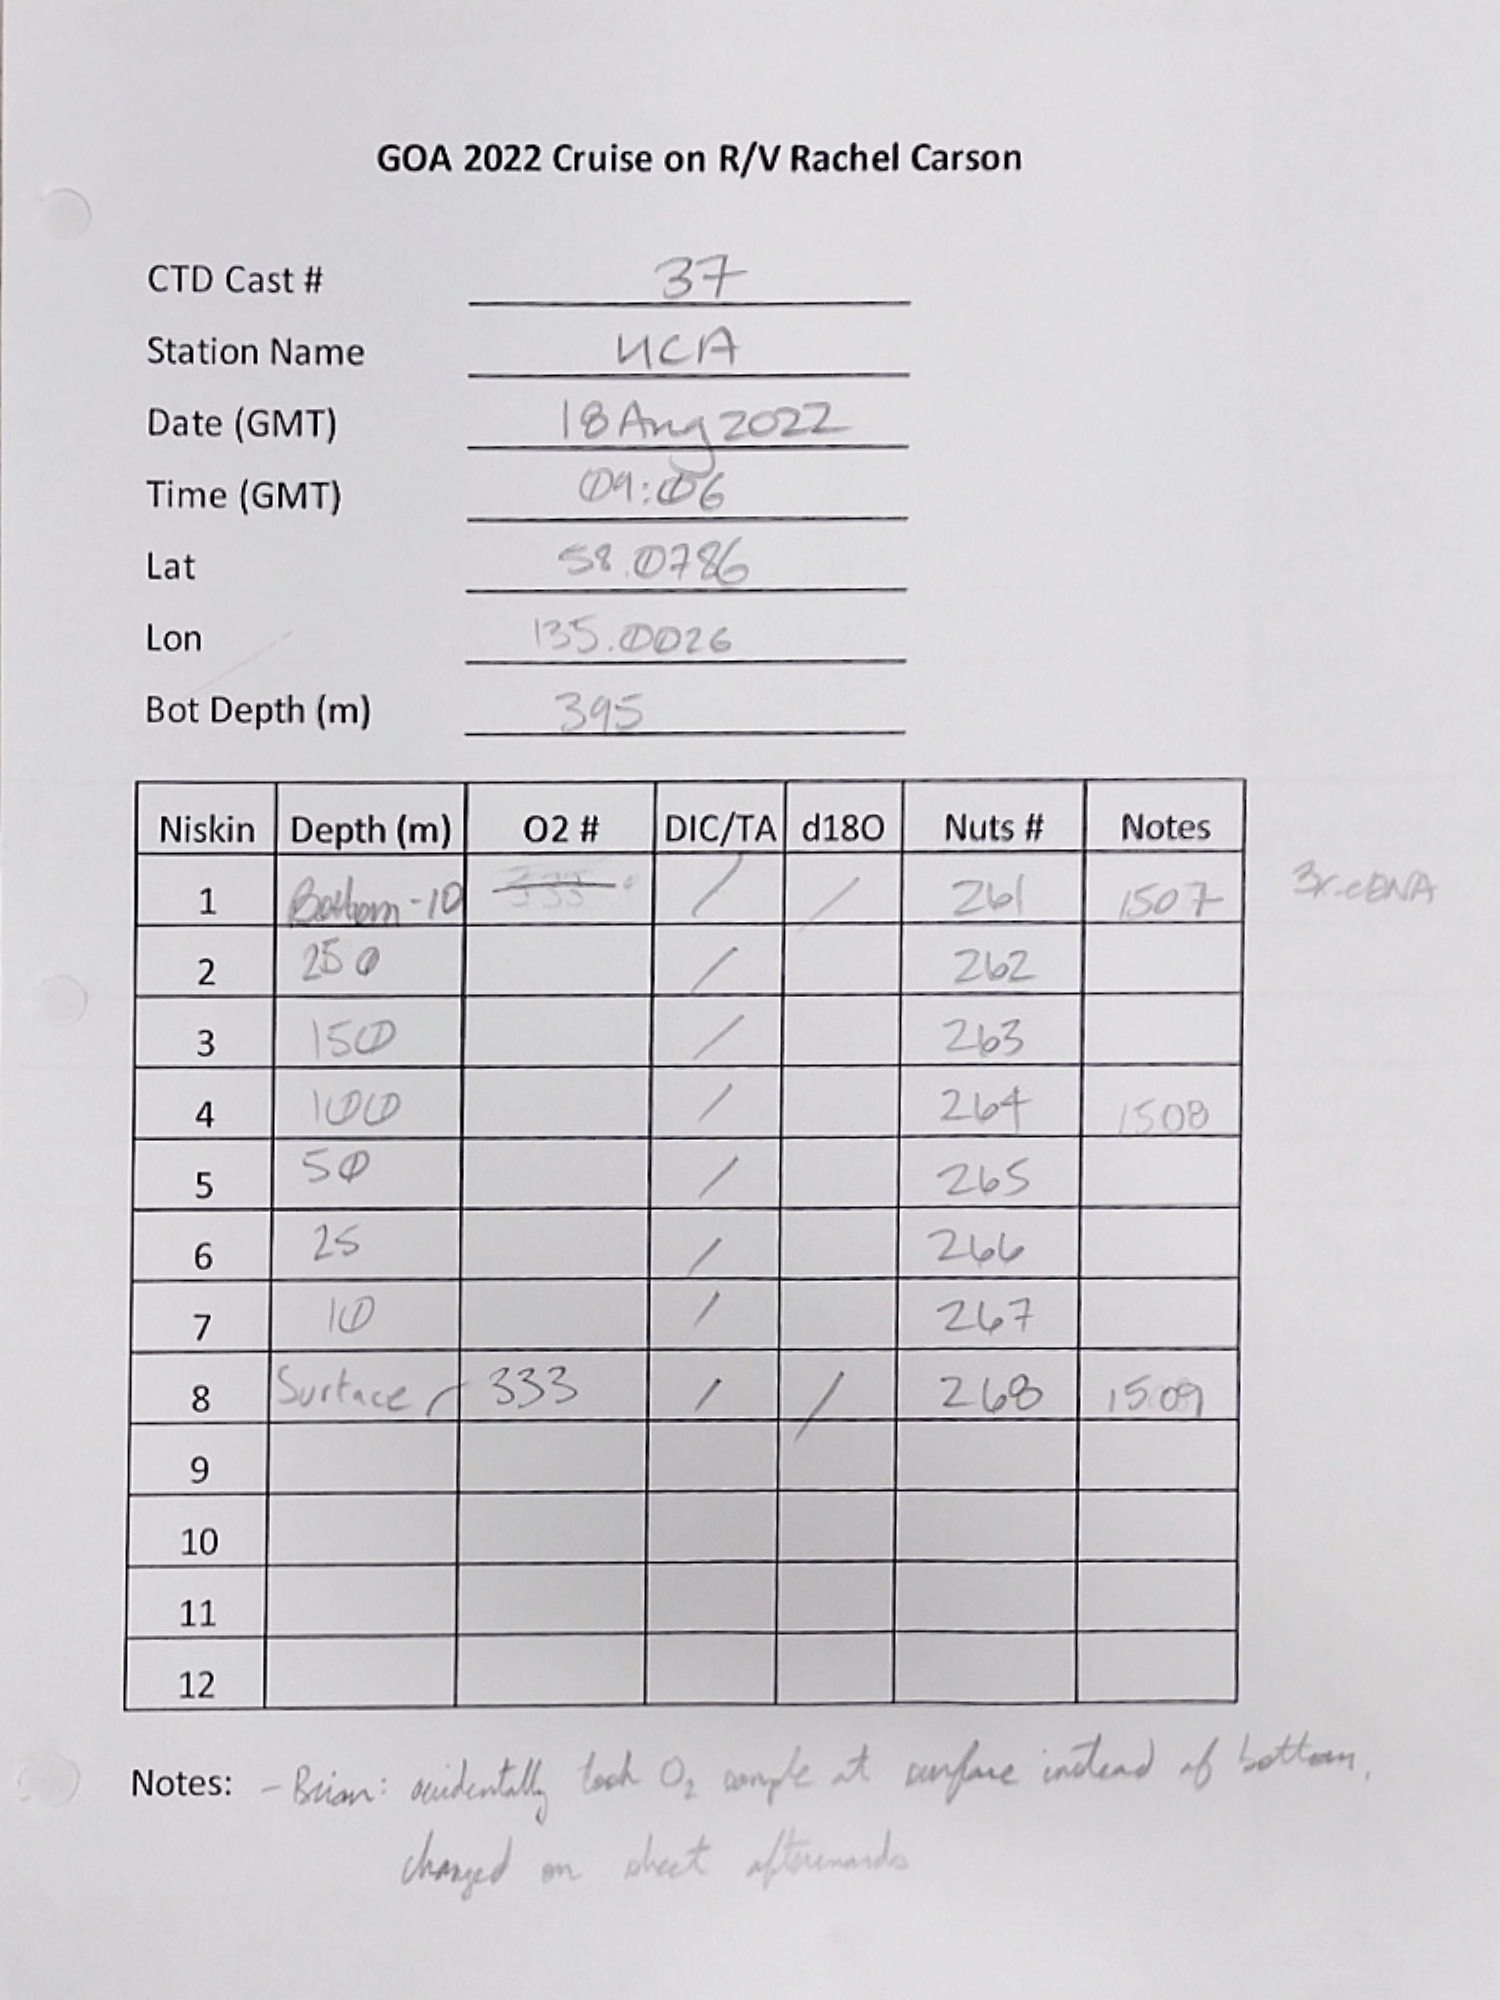 GOA 2022 Cruise on R/V Rachel Carson
CTD Cast # 37
Station Name UCA
Date (GMT) 18 Aug 2022
Time (GMT) 09:06
Lat 58.0786
Lon 135.0026
Bot Depth (m) 395
Niskin Depth (m) O2 # DIC/TA d18O Nuts # Notes
1 Bottom-10 333 / / 261 1507 3x eDNA
2 250 / 262
3 150 / 263
4 100 / 264 1508
5 50 / 265
6 25 / 266
7 10 / 267
8 Surface 333 / / 268 1509
9
10
11
12
Notes: - Brian: accidentally took O2 sample at surface instead of bottom,
changed on sheet afterwards